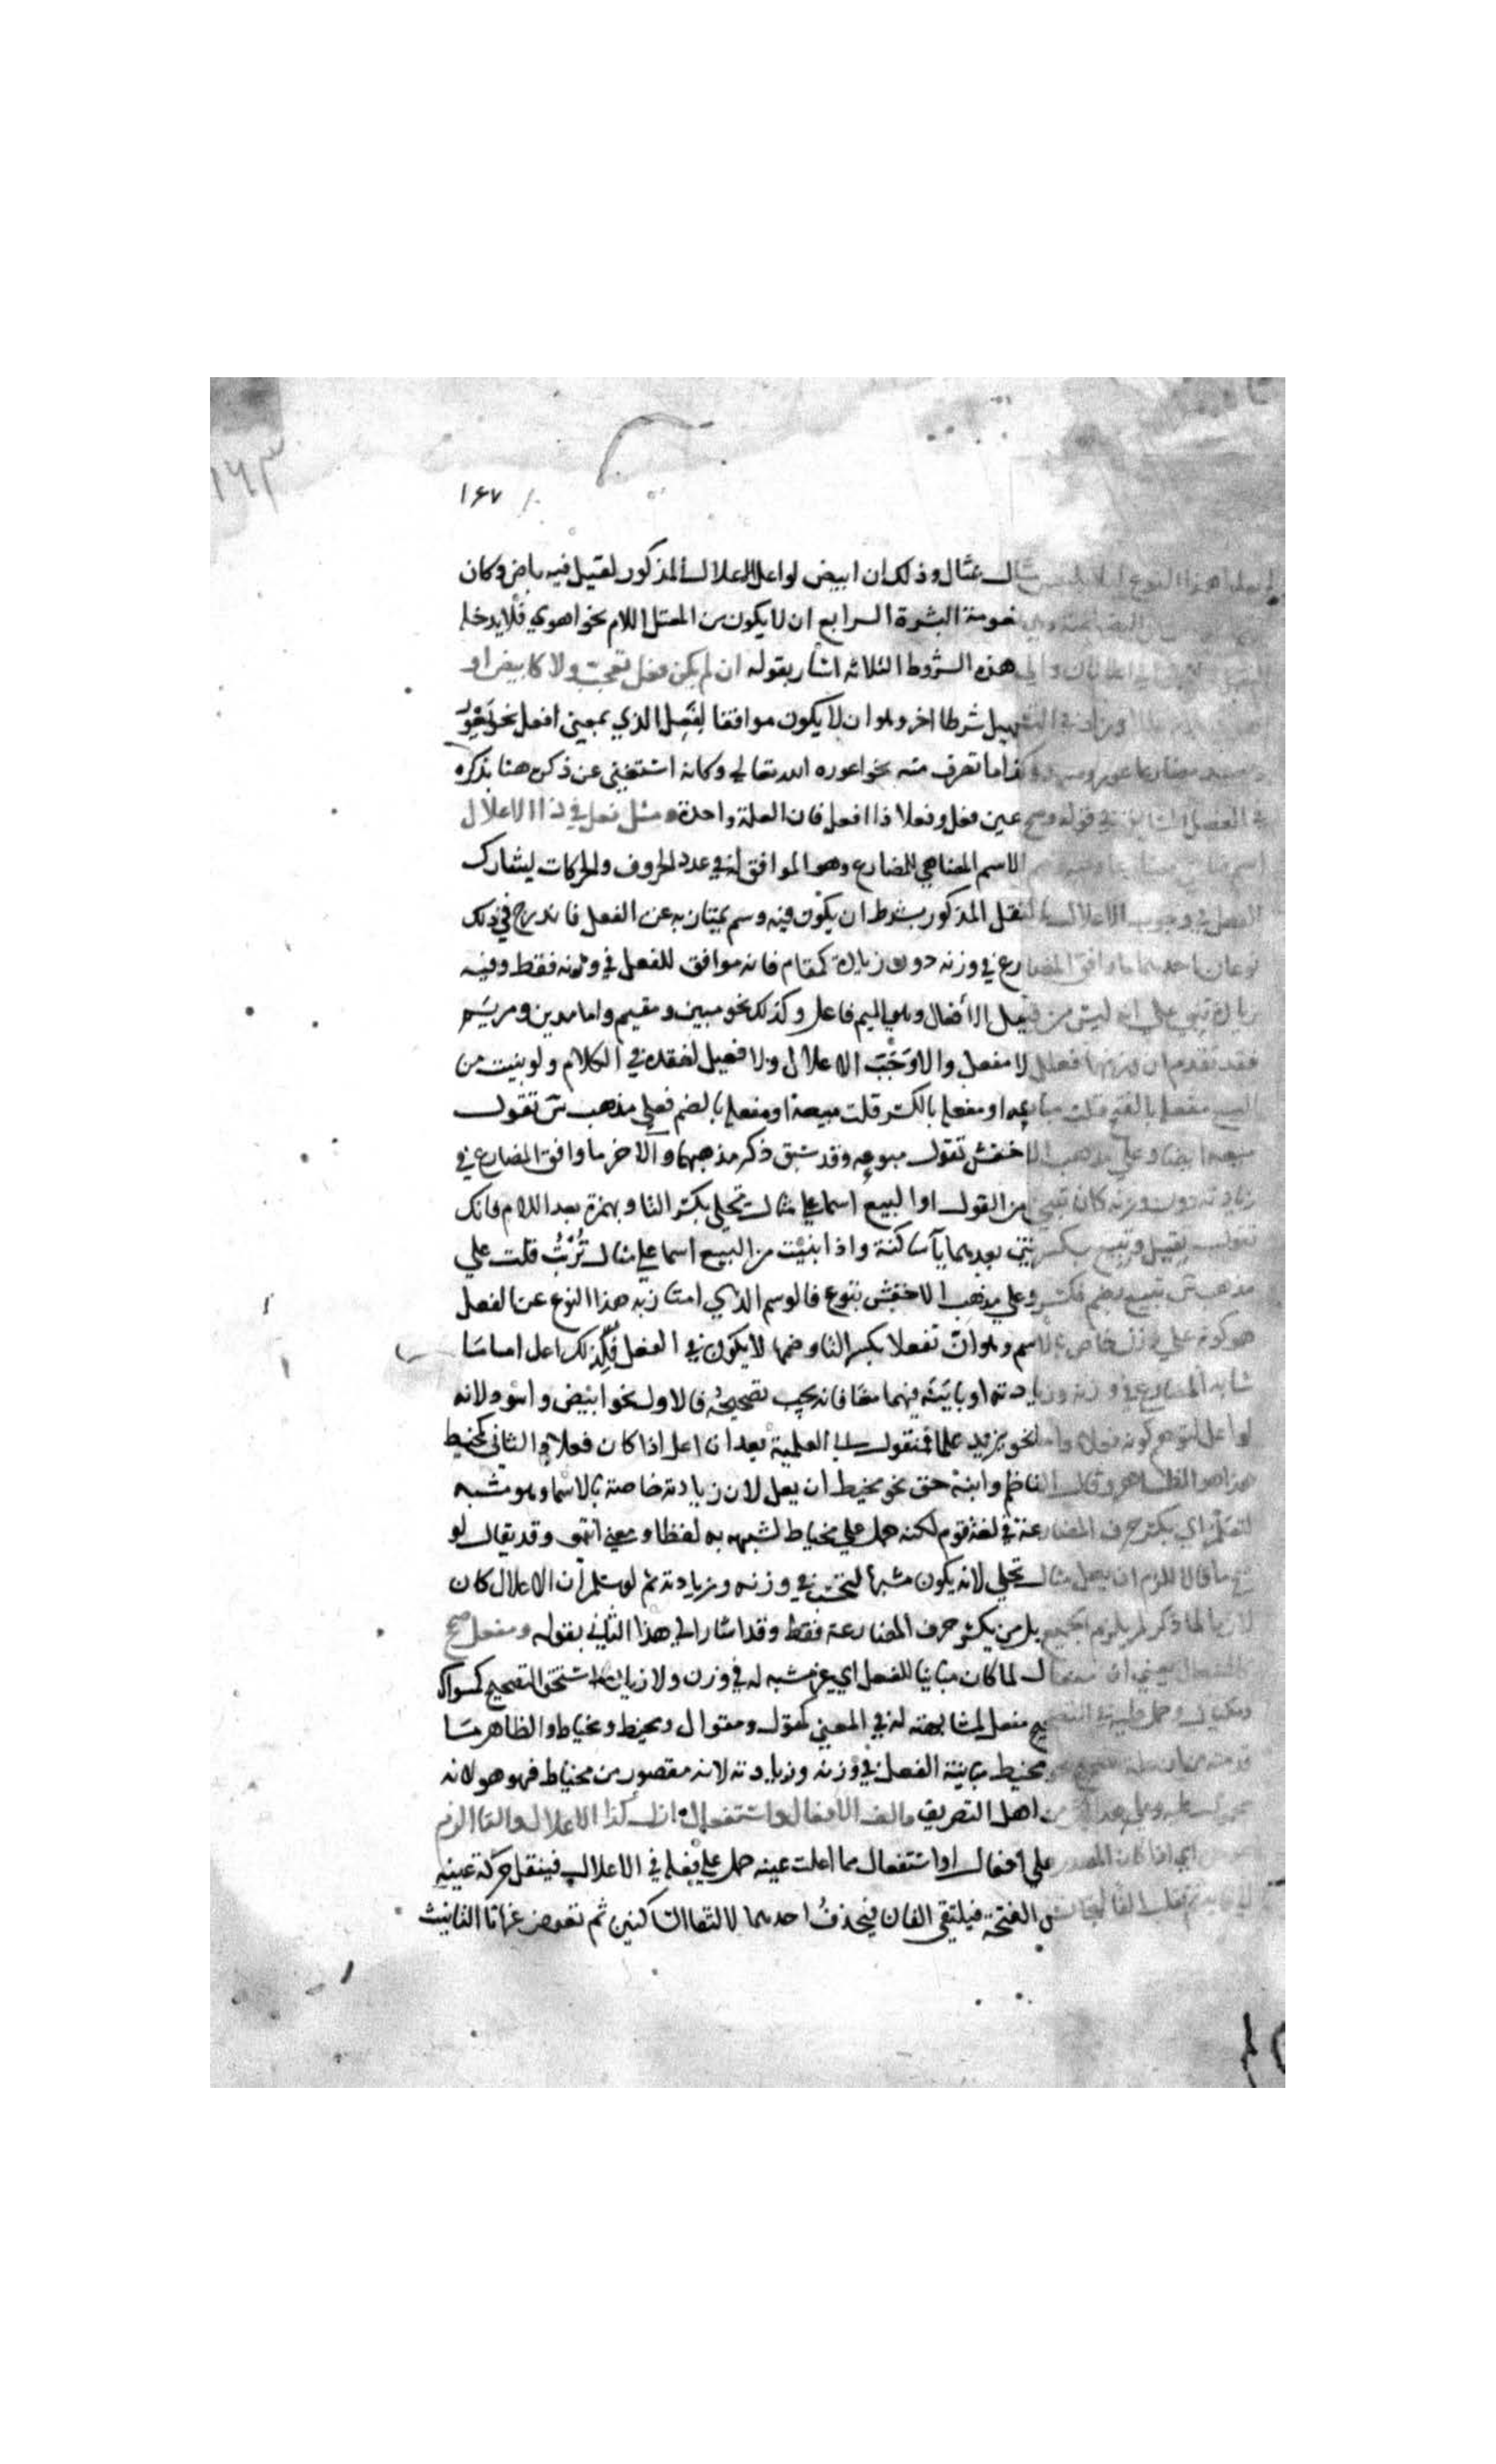 ١٦٣
١٦٧
هذا النوع مثال بمثال وذلك ان ابيض لو اعل الاعلال المذكور لقيل فيه باض وكان
نعومة البشرة الرابع ان لا يكون من المعتل اللام نحو اهوي فلا يدخله
هذه الشروط الثلاثه اشار بقوله ان لم يكن فعل تعجب ولا كابيض او
وزاد في التسهيل شرطا اخر وهو ان لا يكون موافقا لفعل الذي بمعني افعل نحو يعور
وكذا ما تصرف منه نحو اعوره الله تعالي وكانه استغني عن ذكره هنا بذكره
في الفصل السابق في قوله وصح عين فعل وفعلا ذا افعل فان العلة واحدة ومثل فعل في ذا الاعلال
اسم الاسم المضاهي للمضارع وهو الموافق له في عدد الحروف والحركات يشارك
الفعل في وجوب الاعلال بالنقل المذكور بشرط ان يكون فيه وسم يمتاز به عن الفعل فاندرج في ذلك
نوعان احدهما ما وافق المضارع في وزنه دون زيادة كمقام فانه موافق للفعل في وزنه فقط وفيه
زيادة تنبي علي انه ليس من قبيل الافعال وهي الميم فاعل وكذلك نحو مبين ومقيم واما مدين ومريم
فقد تقدم ان وزنهما فعلل لا مفعل والا وجب الاعلال ولا فعيل لفقده في الكلام ولو بنيت من
البيع مفعلة بالفتح قلت مباعه او مفعلة بالكسر قلت مبيعة او مفعلة بالضم فعلي مذهب س تقول
مبيعة ايضا وعلي مذهب الاخفش تقول مبوعه وقد سبق ذكر مذهبهما والاخر ما وافق المضارع في
زيادته دون وزنه كان تبني من القول او البيع اسما علي مثال تحلي بكسر التا وبهمزة بعد اللام فانك
تقول تقيل وتبيع بكسرتين بعدهما يا ساكنة واذا بنيت من البيع اسما علي مثال ترتب قلت علي
مذهب س تبيع بضم فكسر وعلي مذهب الاخفش تبوع فالوسم الذي امتاز به هذا النوع عن الفعل
هو كونه علي وزن خاص بالاسم وهو ان تفعلا بكسر التا وضمها لا يكون في الفعل فلذلك اعل اما ما
شابه المضارع في وزنه وزيادته او باينه فيهما معا فانه يجب تصحيحه فالاول نحو ابيض واسود لانه
لو اعل لتوهم كونه فعلا واما نحو يزيد علما فمنقول الي العلمية بعد ان اعل اذا كان فعلا والثاني كمخيط
هذا هو الظاهر وقال الناظم وابنه حق نحو مخيط ان يعل لان زيادته خاصة بالاسما وهو مشبه
لتعلم اي بكسر حرف المضارعة في لغة قوم لكنه حمل علي مخياط لشبهه به لفظا ومعني انتهى وقد يقال لو
صح ما قالا للزم ان يعل مثال تحلي لانه يكون مشبها لتحسب في وزنه وزيادته ثم لو سلم ان الاعلال كان
لازما لما ذكر لم يلزم الجميع بل من يكسر حرف المضارعة فقط وقد اشار الي هذا الثاني بقوله ومفعل صحح
كالمفعال يعني ان مفعالا لما كان مباينا للفعل اي غير مشبه له في وزن ولا زيادة استحق التصحيح كسواك
ومكيال وحمل عليه في التصحيح مفعل لمشابهته له في المعني كمقول ومقوال ومخيط ومخياط والظاهر ما
قدمته من ان علة تصحيح نحو مخيط مباينة الفعل في وزنه وزيادته لانه مقصور من مخياط فهو هو لانه
محمول عليه وعلي هذا كثير من اهل التصريف والف الافعال واستفعال ازل لذا الاعلال والتا الزم
عوض اي اذا كان المصدر علي افعال او استفعال مما اعلت عينه حمل علي فعله في الاعلال فينقل حركة عينه
الي فائه ثم تقلب الفا لتجانس الفتحة فيلتقي الفان فيحذف احدهما لالتقا الساكنين ثم تعوض عنها تا التانيث